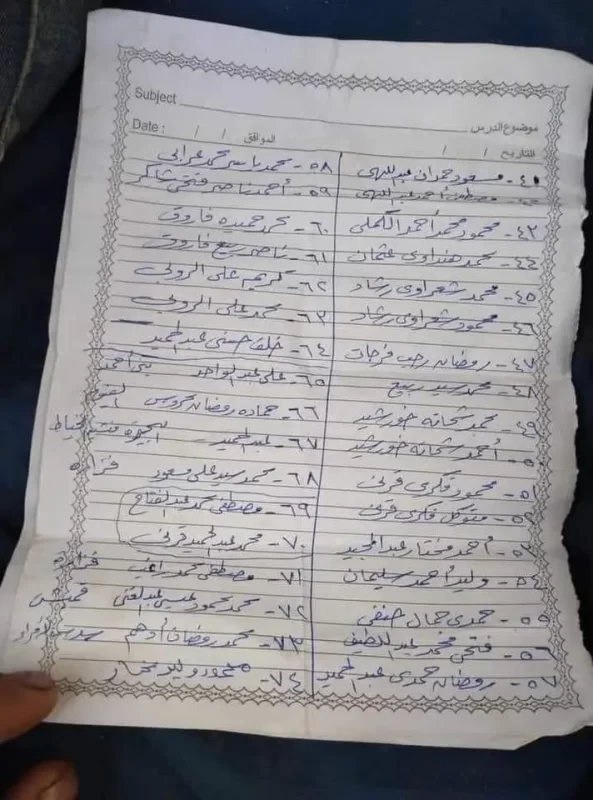 Subject
موضوع الدرس
Date : / /
الموافق / /
التاريخ
٤١- مسعود حمدان عبدالهى
مصطفى أحمد عبدالهى
٤٣- محمود محمد أحمد
٤٤- محمد هنداوى عثمان
٤٥- محمد شعراوى رشاد
٤٦- محمود شعراوى رشاد
٤٧- رمضان رجب فرحات
٤٨- محمد سيد ربيع
٤٩- محمد شحاته خورشيد
٥٠- أحمد شحاته خورشيد
٥١- محمود فكرى قرنى
٥٢- متوكل فكرى قرنى
٥٣- أحمد مختار عبدالمجيد
٥٤- وليد أحمد سليمان
٥٥- حمدى جمال حنفى
٥٦- فتحى محمد عبداللطيف
٥٧- رمضان حمدى عبدالحميد
٥٨- محمد ياسر محمد
٥٩- أحمد ناصر فتحى شاكر
٦٠- محمد حميده فاروق
٦١- ناصر ربيع فاروق
٦٢- كريم على
٦٣- محمد على
٦٤- خلف حسنى عبدالحميد
٦٥- على عبدالواحد
٦٦- حماده رمضان محروس
٦٧- عبدالحميد
٦٨- محمد سيد على مسعود
٦٩- مصطفى محمد عبدالفتاح
٧٠- محمد عبدالحميد قرنى
٧١- مصطفى محمد راغب
٧٢- محمد محمود عيسى عبدالغنى
٧٣- محمد رمضان أدهم
٧٤- محمود